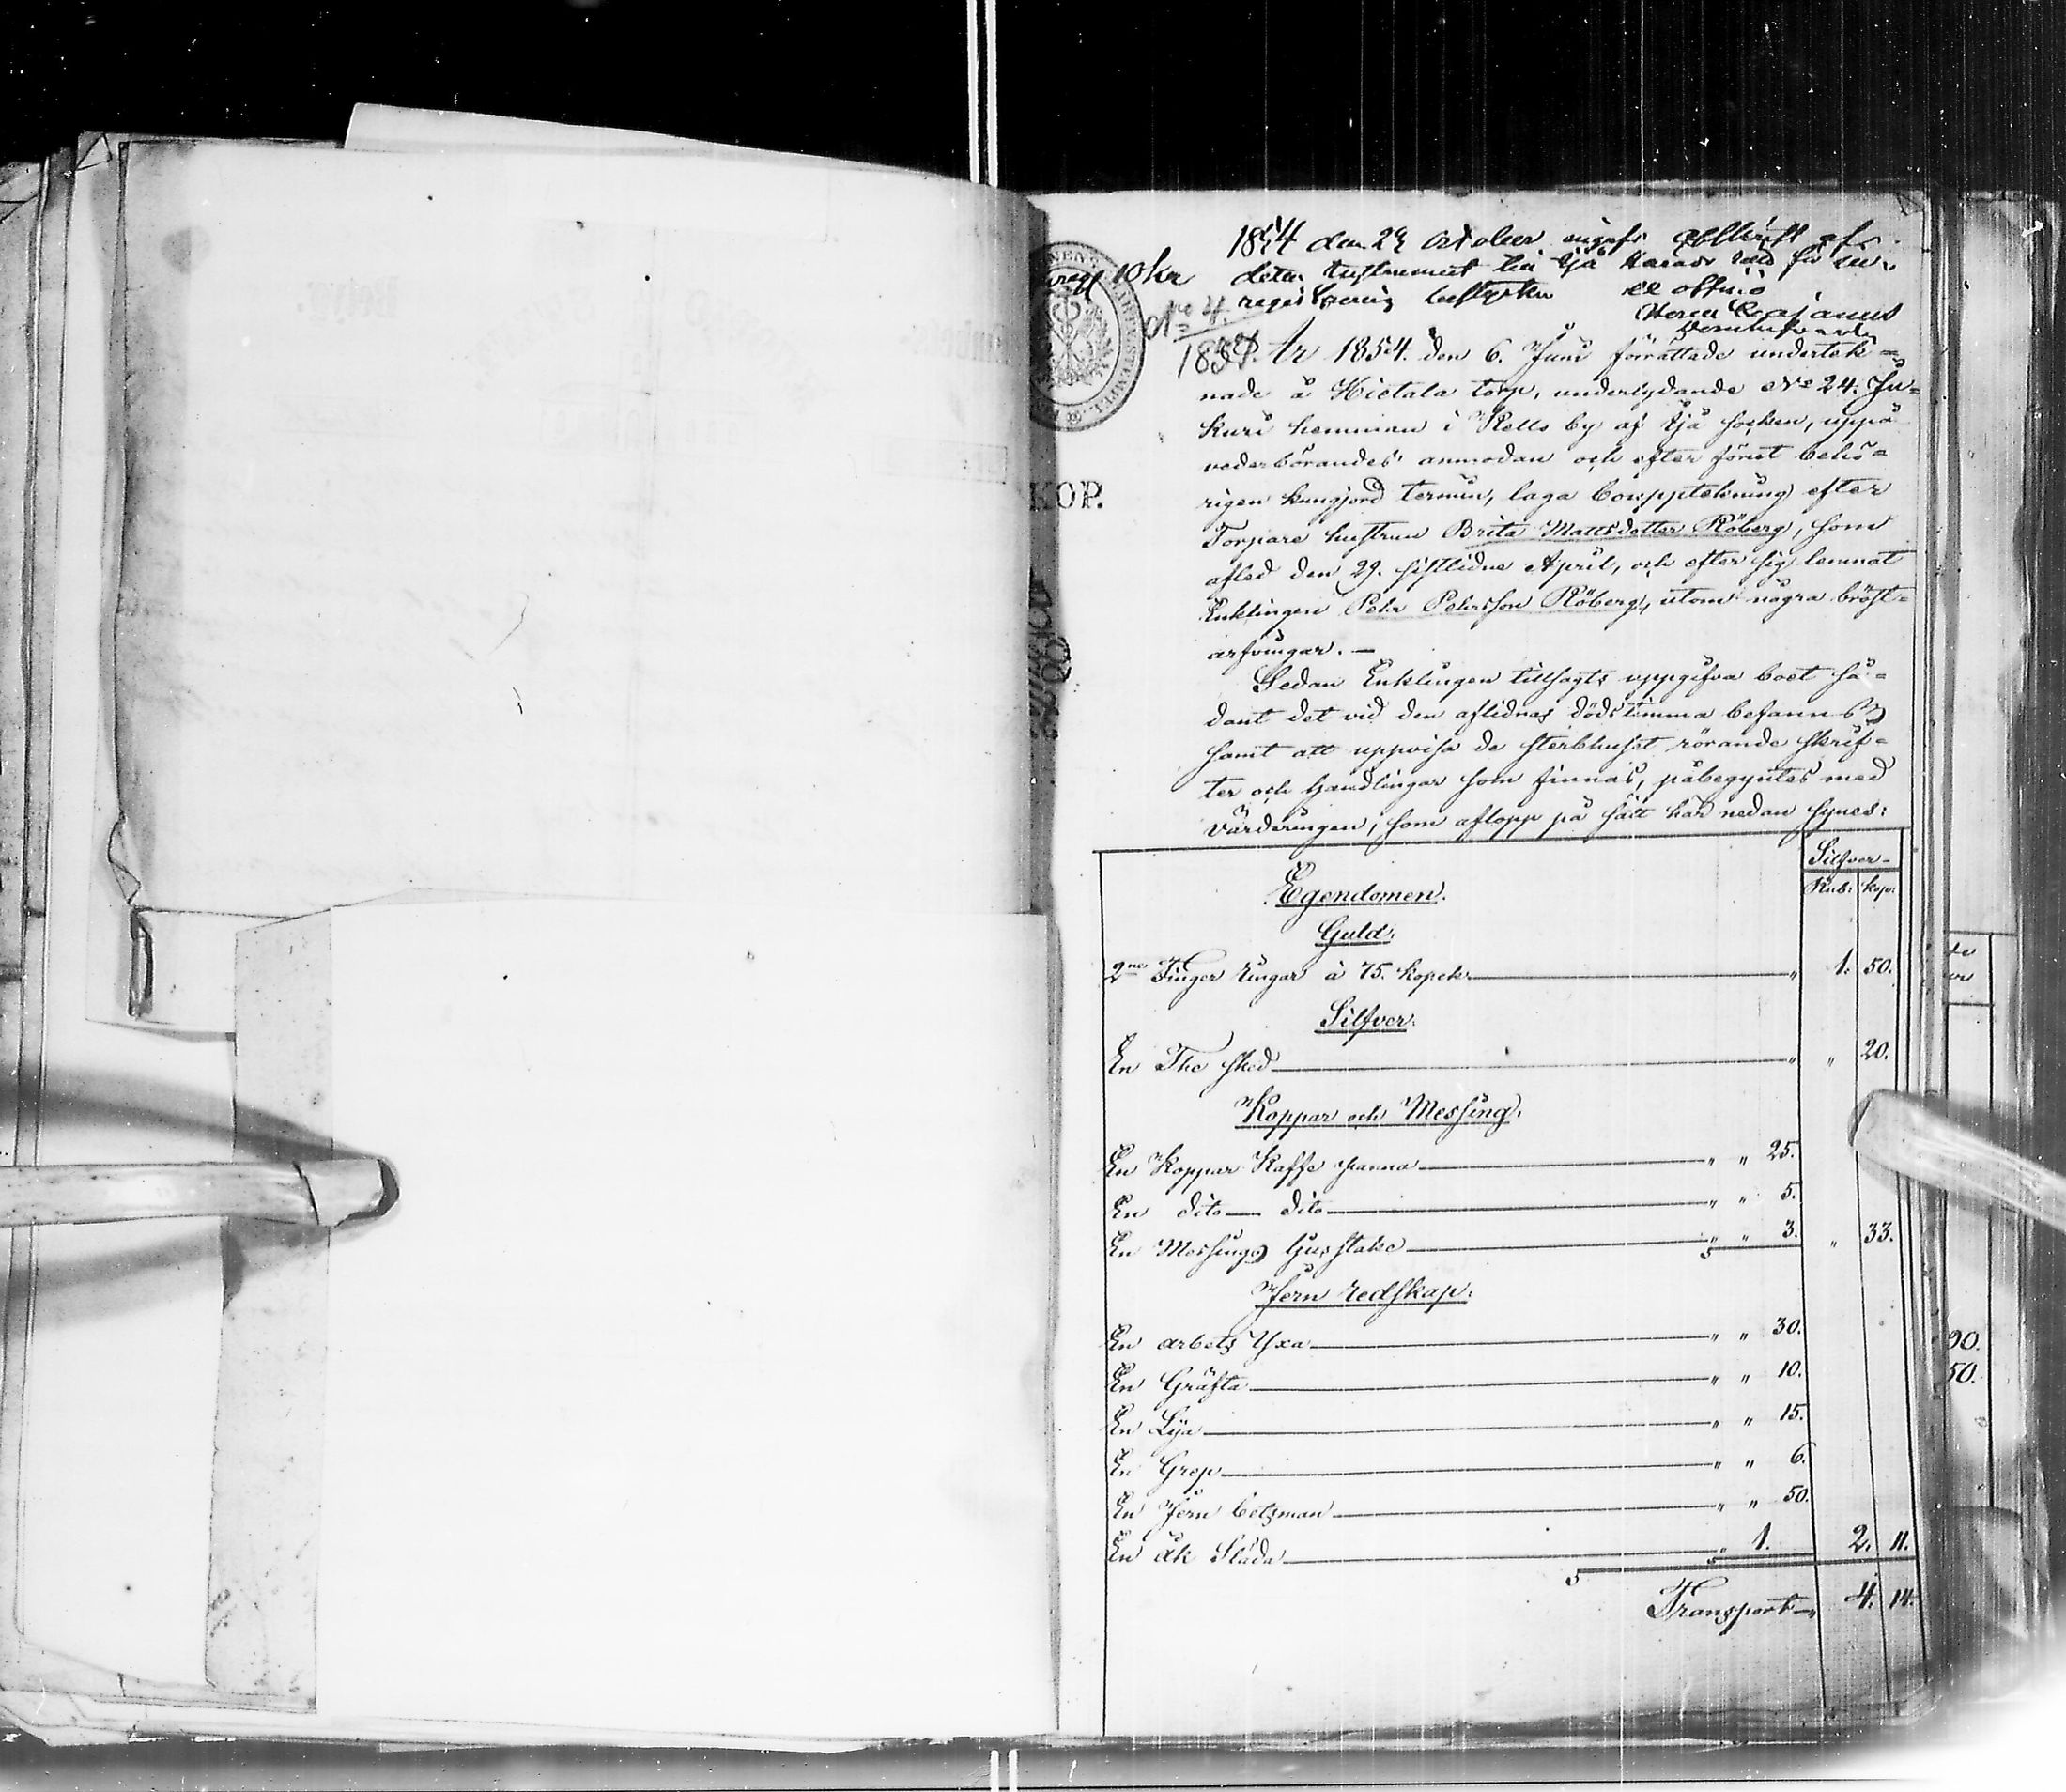 1854 den 29 October ingafs afskrift af
detta instrument
No 4. registrering
ex officio
1854.
KOP.
År 1854. den 6. Juni förrättade underteck=
nade å Hietala torp, underlydande No 24. Ju=
kuri hemman i Kello by af Ijå socken, uppå
vederbörandes anmodan och efter förut behö=
rigen kungjord termin, laga bouppteckning efter
Torpare hustrun Brita Mattsdotter Röberg, som
afled den 29. sistlidne April, och efter sig lemnat
Enklingen Pehr Pehrsson Röberg, utom några bröst=
arfvingar. —
Sedan Enklingen tillsagts uppgifva boet så=
dant det vid den aflidnas dödstimma befanns,
samt att uppvisa de sterbhuset rörande skrif=
ter och handlingar som finnas, påbegyntes med
värderingen, som aflopp på sätt här nedan synes:
Silfver-
Egendomen. Rub: kop:
Guld.
2ne Finger ringar à 75. kopek — " 1. 50.
Silfver.
En The sked — " " 20.
Koppar och Messing.
En Koppar Kaffe panna — " " 25.
En dito — dito — " " 5.
En Messings ljusstake — " " 3. " 33.
Jern redskap.
En arbets Yxa — " " 30.
En Gräfta — " " 10.
En Lija — " " 15.
En Grep — " " 6.
En Jern betsman — " " 50.
En åk Släda — " 1. 2. 11.
Transport — " 4. 14.
90.
50.